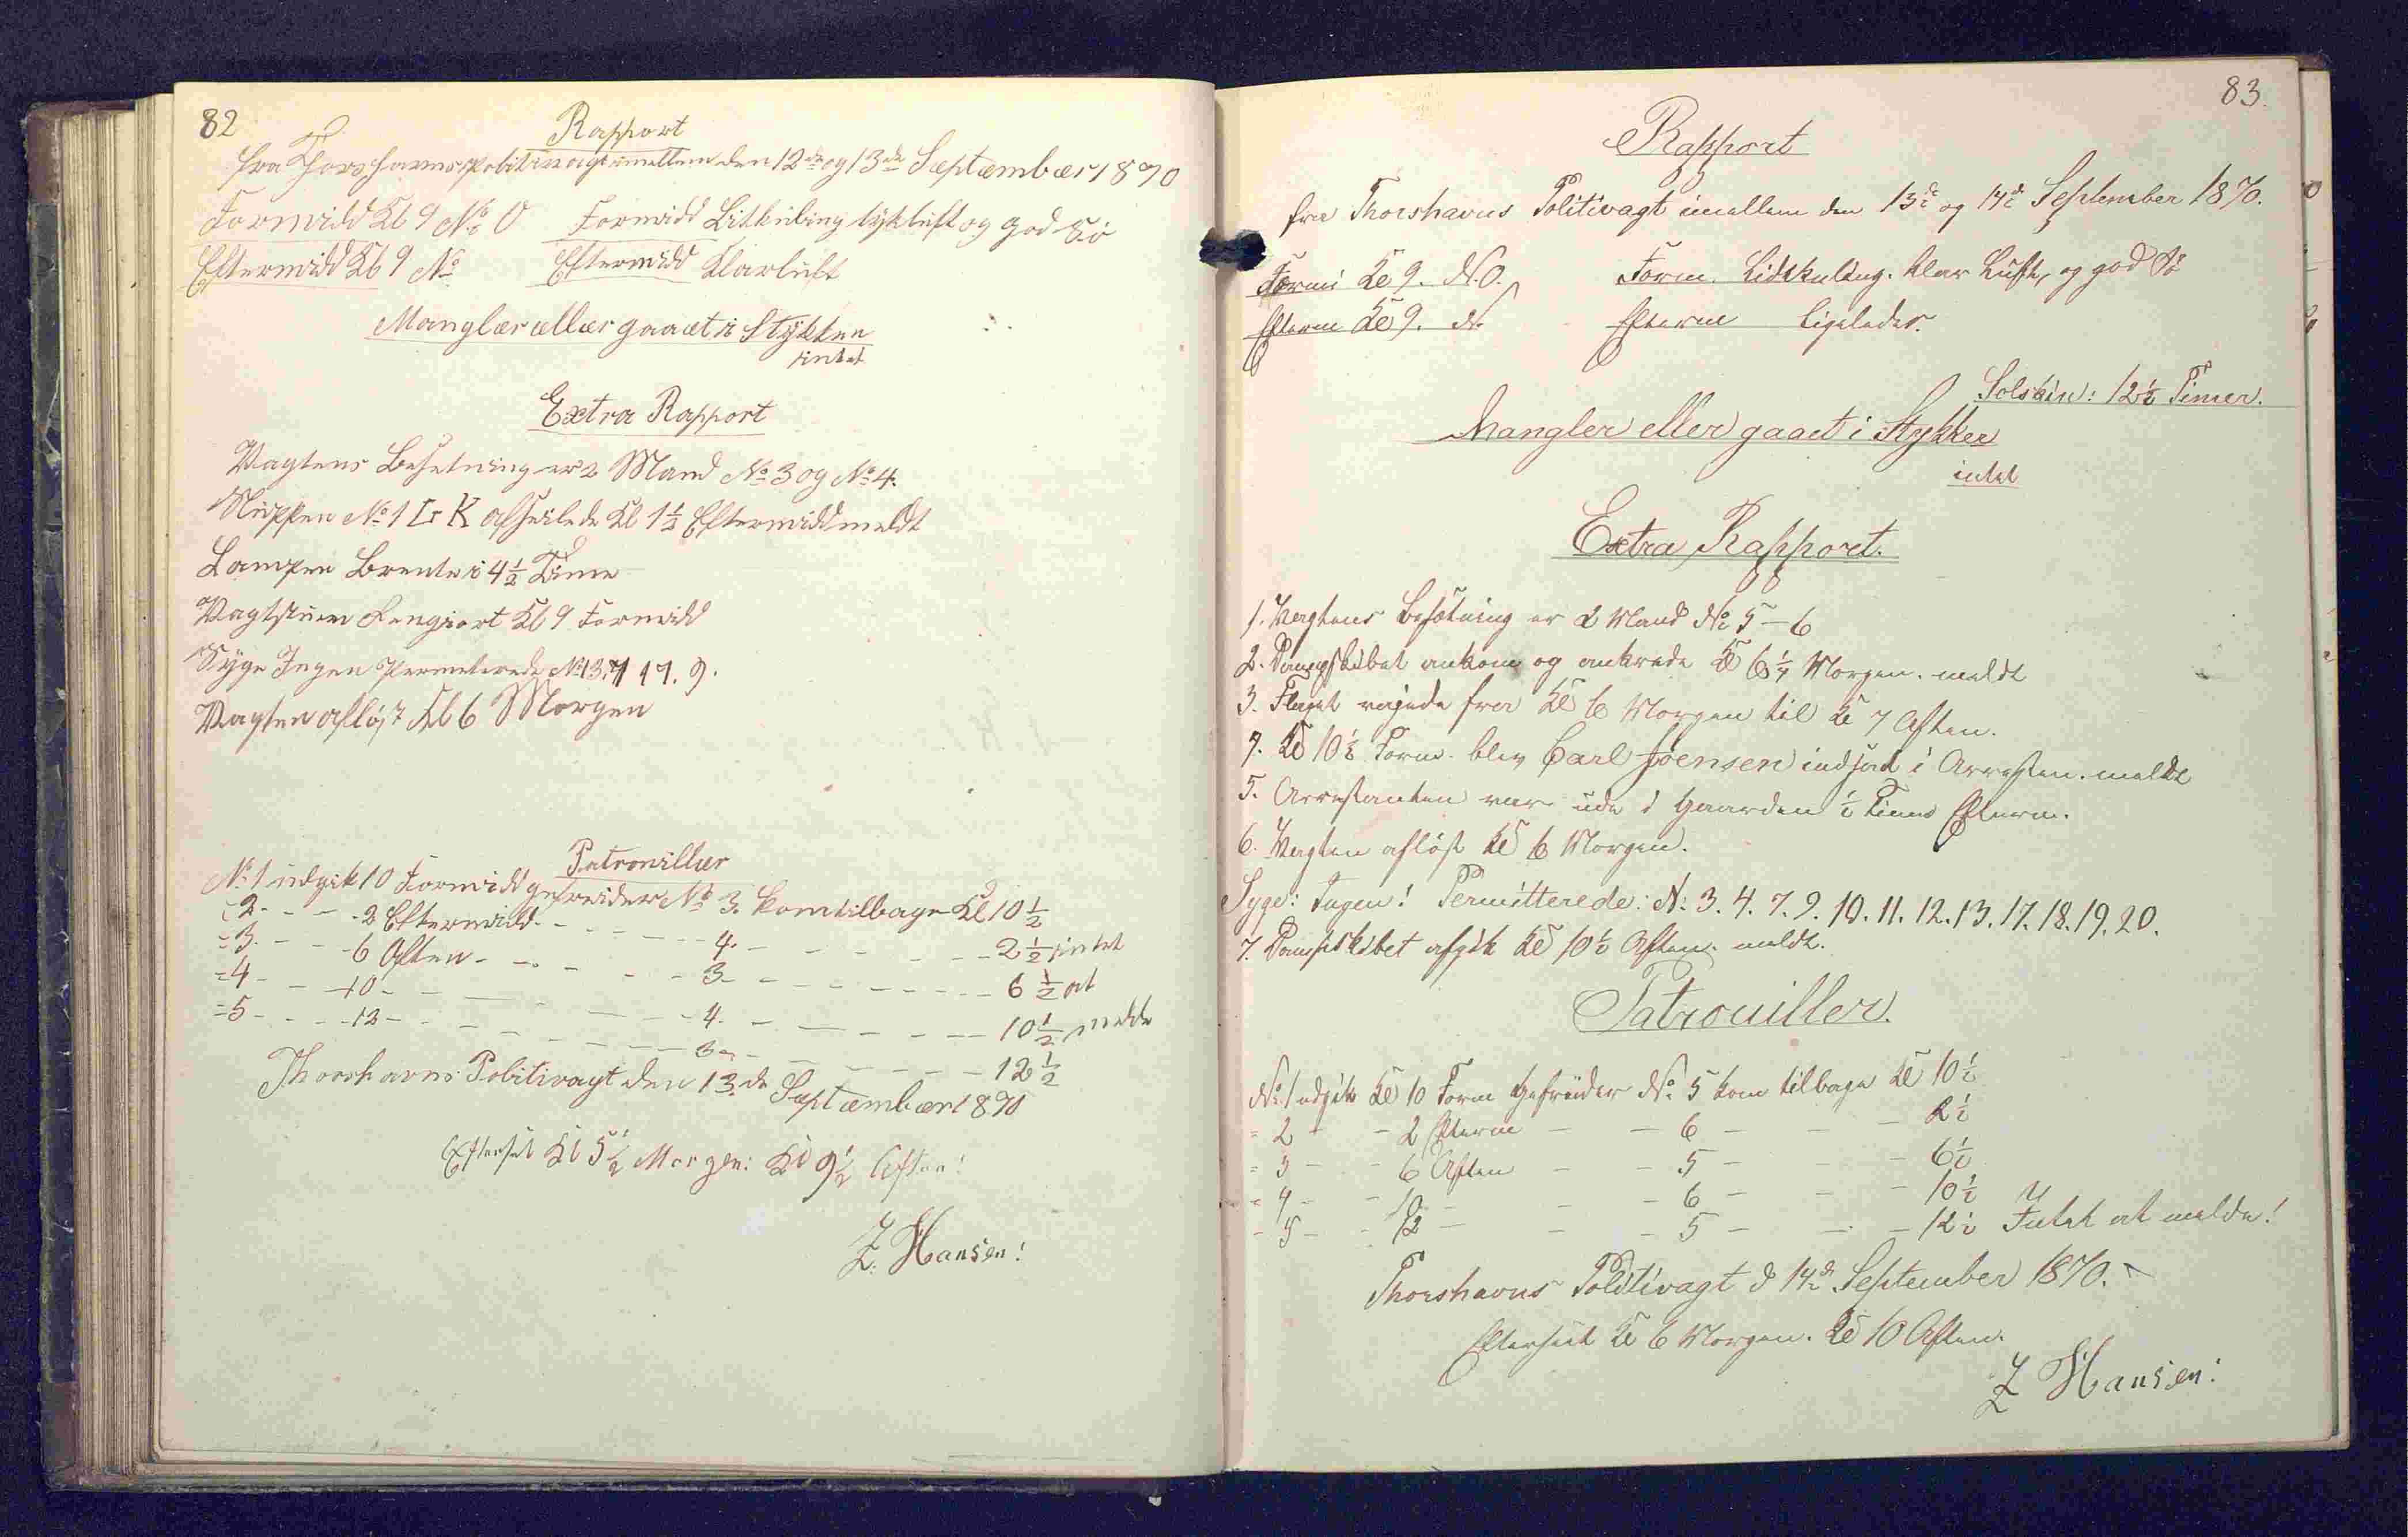 82
Rapport
fra Thorshavns Politivagt imellem den 12de og 13de September 1870
Formidd Kl 9 N. O Formidd Litkuling tykluft og god Sö
Eftermidd Kl 9 N. Eftermidd Klarluft
Manglær ællær gaaet i Stykker
intet
Extra Rapport
Vagtens Besetning er 2 Mand No 3 og No 4.
Sluppen No 1 L K afseilede Kl 1½ Eftermidd meldt
Lampen Brente i 4½ Time
Vagtstuen Rengiort Kl 9 Formidd
Syge Ingen Permiterede No 13. 17. 9.
Vagten aflöst Kl 6 Morgen
Patrouillær
No 1 udgik 10 Formidd gefreider No 3. kom tilbage Kl 10½
=2 - - - 2 Eftermidd - - - 4. - - - 2½ intet
=3. - - - 6 Aften - - - 3 - - - 6½ at
=4 - - 10 - - - 4. - - - 10½ melde
=5 - - - 12 - - - 3 - - - 12½
Thorshavns Politivagt den 13.de September 1870
Efterset Kl 5½ Morgen: Kl 9½ Aften!
Z. Hansen!
83.
Rapport
fra Thorshavns Politivagt imellem den 13de og 14de September 1870.
Form Kl 9. N.O. Form. Lidkuling. klar Luft, og god Sö
Efterm Kl 9. N. Efterm ligeledes.
Solskin: 12½ Timer.
Mangler eller gaaet i Stykker
intet
Extra Rapport.
1. Vagtens Besætning er 2 Mand No 5 - 6
2. Dampskibet ankom og ankrede Kl 6¼ Morgen. meldt
3. Flaget vajede fra Kl 6 Morgen til Kl 7 Aften.
4. Kl 10½ Form. blev Carl Joensen indsat i Arresten. meldt
5. Arrestanten var ude i Gaarden ½ Times Efterm.
6. Vagten aflöst Kl 6 Morgen.
Syge: Ingen! Permitterede: N: 3. 4. 7. 9. 10. 11. 12. 13. 17. 18. 19. 20.
7. Dampskibet afgik Kl 10½ Aften. meldt.
Patrouiller.
No 1 udgik Kl 10 Form Gefreider No 5 kom tilbage Kl 10½
= 2 - - 2 Efterm - - 6 - - - 2½
= 3 - - 6 Aften - - 5 - - - 6½
= 4 - - 10 - - - 6 - - - 10½
- 5 - - 12 - - - 5 - - - 12½ Intet at melde!
Thorshavns Politivagt d 14de September 1870.
Efterset Kl 6 Morgen. Kl 10 Aften.
Z Hansen!